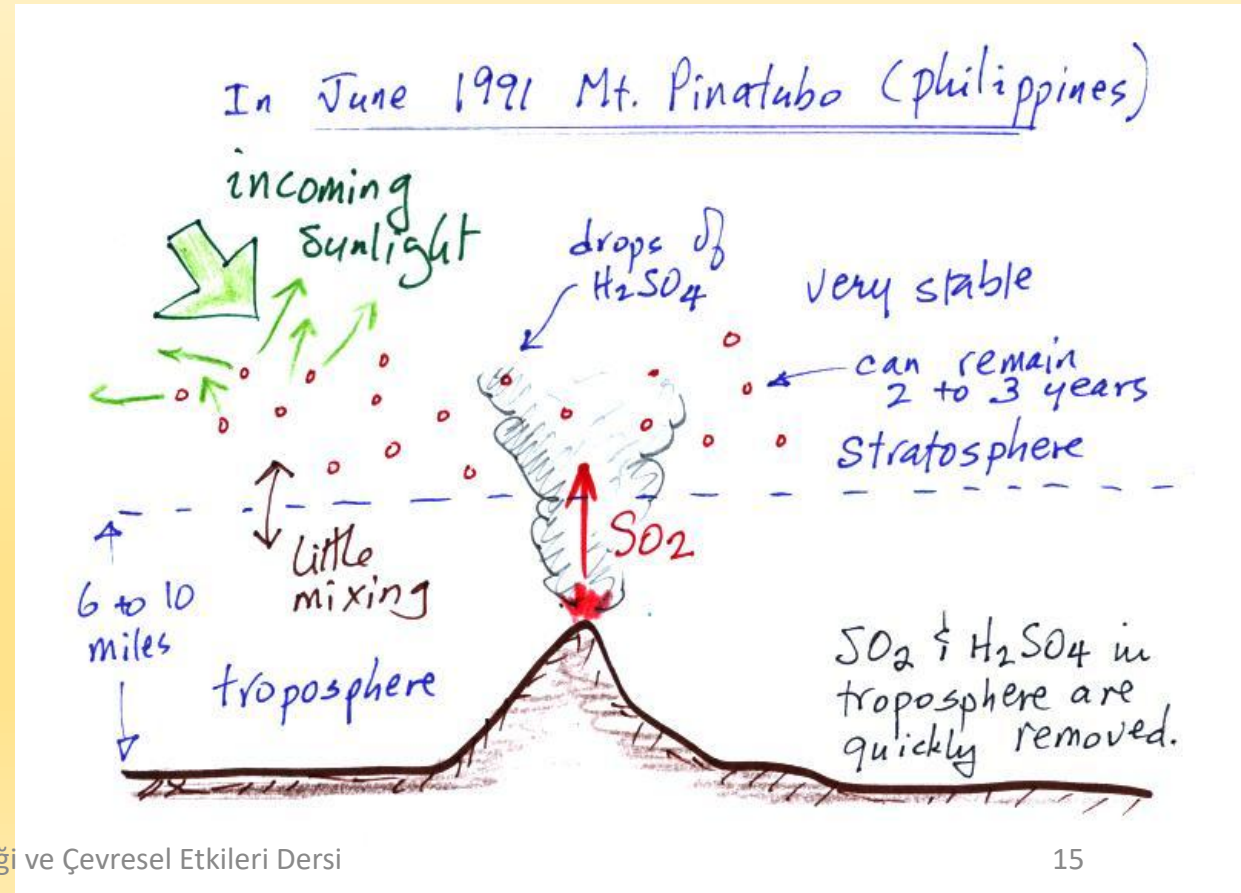 In June 1991 Mt. Pinatubo (philippines)
incoming
sunlight
drops of
H₂SO₄
very stable
can remain
2 to 3 years
stratosphere
little
mixing
SO₂
6 to 10
miles
troposphere
SO₂ & H₂SO₄ in
troposphere are
quickly removed.
ği ve Çevresel Etkileri Dersi
15